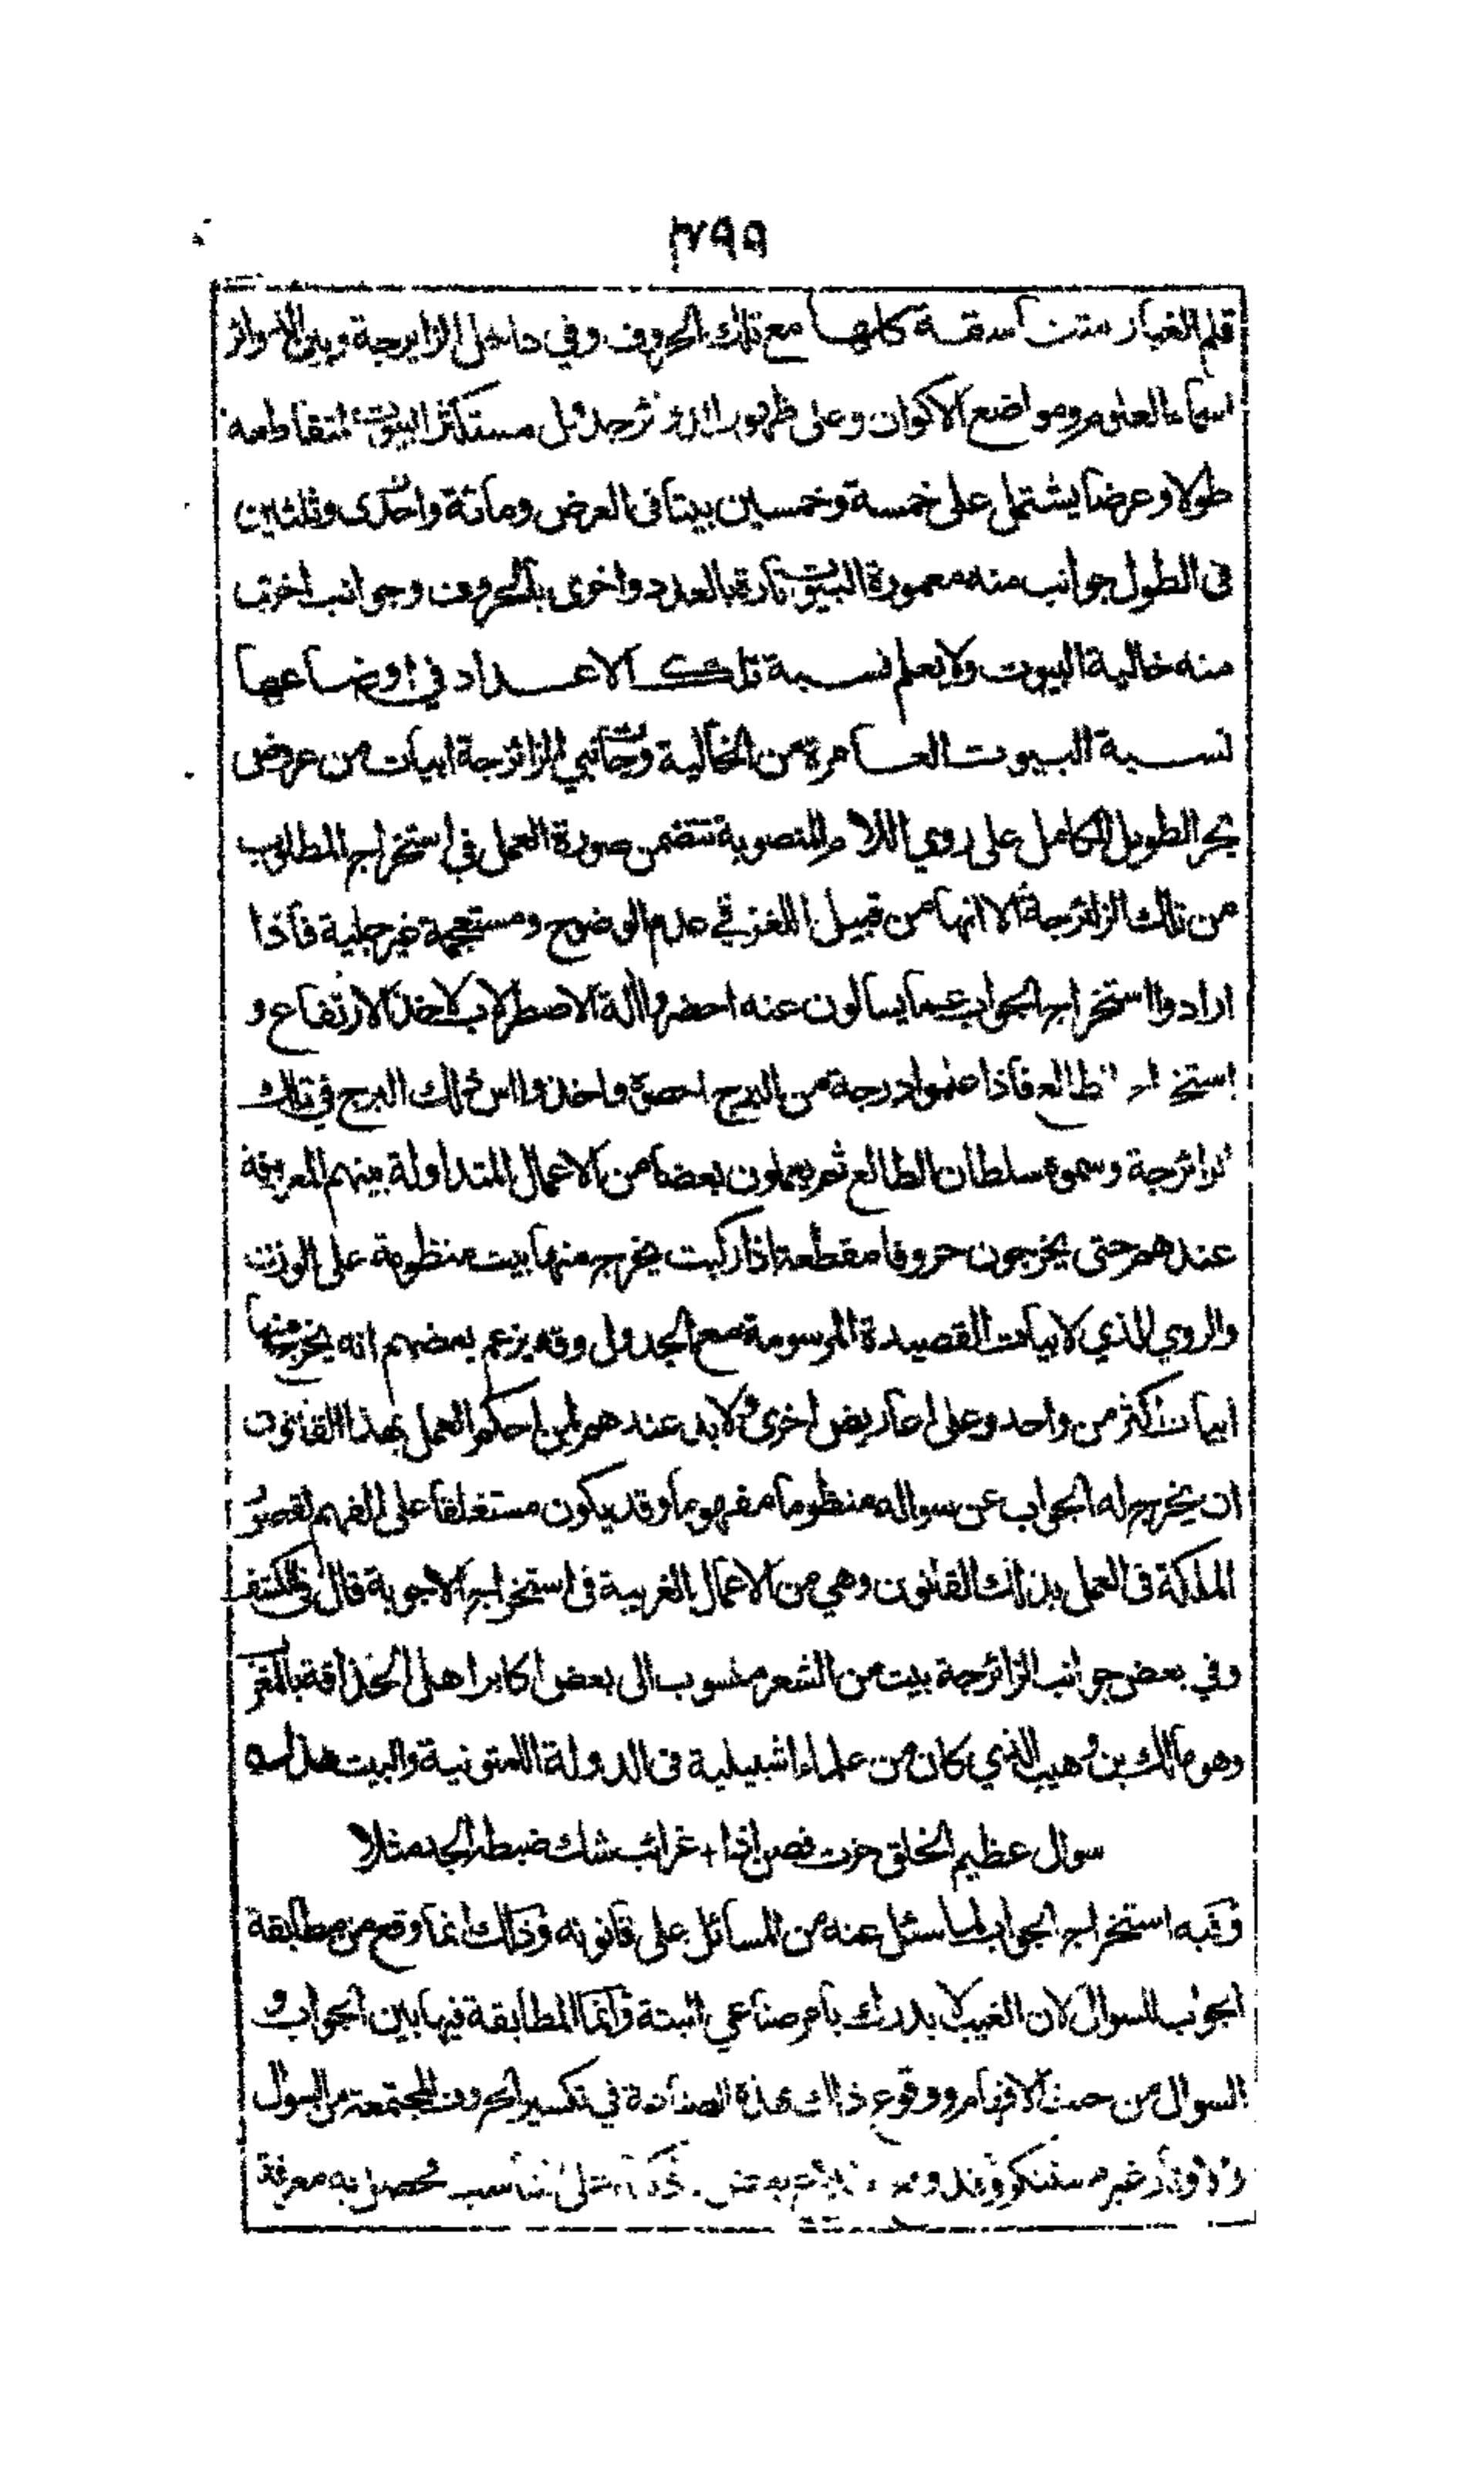 ٣٩٩
قلم الغبار متناسقة كلها مع تلك الحروف وفي داخل الزايرجة وبين الدوائر
اسماء العلوم ومواضع الاكوان وعلى ظهور الدوائر جدول مستكثر البيوت المتقاطعة
طولا وعرضا يشتمل على خمسة وخمسين بيتا فى العرض ومائة واحدى وثلثين
فى الطول جوانب منه معمورة البيوت تارة بالعدد واخرى بالحروف وجوانب اخرى
منه خالية البيوت ولا يعلم نسبة تلك الاعداد في اوضاعها
نسبة البيوت العامرة من الخالية وبجانبي الزائرجة ابيات من عروض
بحر الطويل الكامل على روي اللام المنصوبة تتضمن صورة العمل فى استخراج المطلوب
من تلك الزائرجة الا انها من قبيل اللغز في عدم الوضوح ومستعجمة غير جلية فاذا
ارادوا استخراج الجواب عما يسالون عنه احضروا الة الاصطرلاب لاخذ الارتفاع و
استخراج الطالع فاذا علموا درجة من البرج احصوه واخذوا اس ذلك البرج في تلك
الزائرجة وسموه سلطان الطالع ثم يعملون بعضا من الاعمال المتداولة بينهم المعروفة
عندهم حتى يخرجون حروفا مقطعة اذا ركبت يخرج منها بيت منظومة على الوزن
والروي الذي لابيات القصيدة المرسومة مع الجدول وقد يزعم بعضهم انه يخرج منها
ابيات اكثر من واحد وعلى اعاريض اخرى ولا بد عندهم لمن احكم العمل بهذا القانون
ان يخرج له الجواب عن سواله منظوما مفهوما وقد يكون مستغلقا على الفهم لقصور
الملكة فى العمل بذلك القانون وهي من الاعمال الغريبة فى استخراج الاجوبة قال فى الكشف
وفي بعض جوانب الزائرجة بيت من الشعر منسوب الى بعض اكابر اهل الحذاقة بالمغر
وهو مالك بن وهيب الذي كان من علماء اشبيلية فى الدولة اللمتونية والبيت هذا سه
سوال عظيم الخلق حزت فصن اذا + غرائب شك ضبطه الجد مثلا
وفيه استخراج الجواب لما سئل عنه من المسائل على قانونه وذلك انما وقع من مطابقة
الجواب للسوال لان الغيب لا يدرك بامر صناعي البتة وانما المطابقة فيها بين الجواب و
السوال من حيث الافهام ووقوع ذلك بهذه الصناعة في تكسير الحروف المجتمعة من السوال
والاوتار غير مستنكر وقد وقع بعض على تناسب يحصل به معرفة